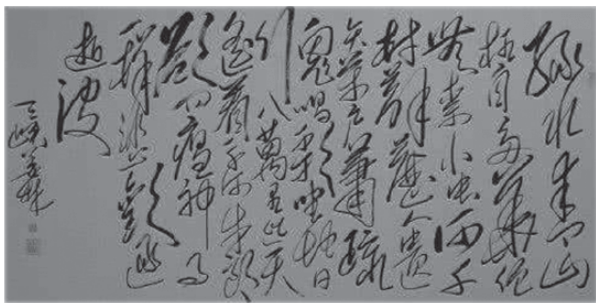 綠水青山
枉自多華佗
無奈小虫何千
村薜荔人遺
矢萬户蕭疏
鬼唱歌坐地日
行八萬里巡天
遥看一千河牛郎
欲问瘟神事
一样悲歡逐
逝波